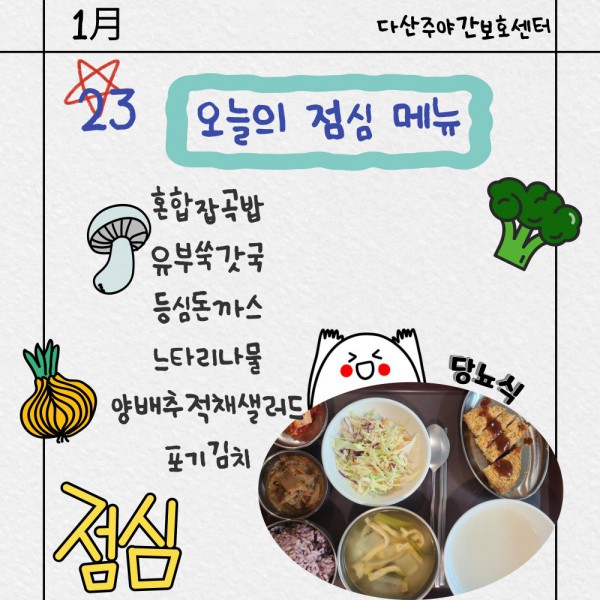 1月
다산주야간보호센터
23
오늘의 점심 메뉴
혼합잡곡밥
유부쑥갓국
등심돈까스
느타리나물
양배추적채샐러드
포기김치
당뇨식
점심